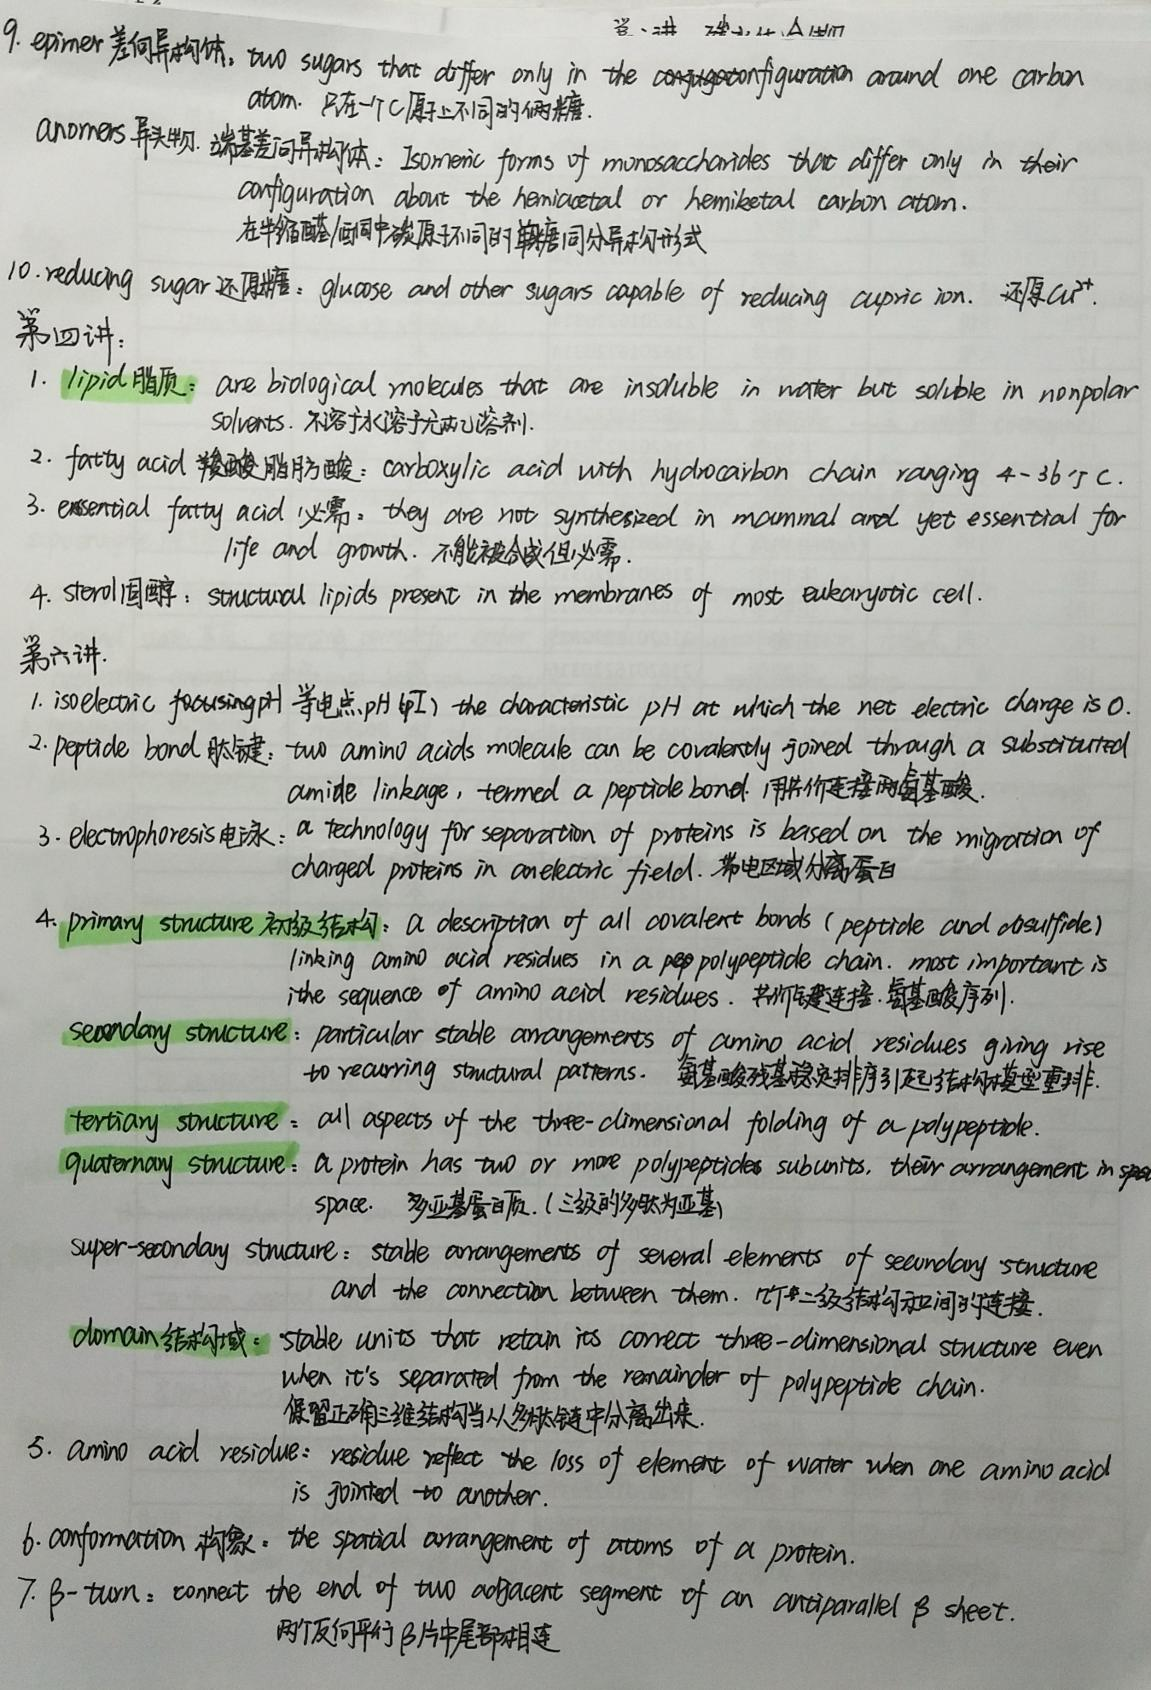 9. epimer 差向异构体: two sugars that differ only in the configuration around one carbon
atom. 只在一个C原子上不同的俩糖.
anomers 异头物. 端基差向异构体: Isomeric forms of monosaccharides that differ only in their
configuration about the hemiacetal or hemiketal carbon atom.
在半缩醛/酮中碳原子不同的单糖同分异构形式
10. reducing sugar 还原糖: glucose and other sugars capable of reducing cupric ion. 还原Cu²⁺.
第四讲:
1. lipid 脂质: are biological molecules that are insoluble in water but soluble in nonpolar
solvents. 不溶于水溶于溶剂.
2. fatty acid 羧酸脂肪酸: carboxylic acid with hydrocarbon chain ranging 4-36个C.
3. essential fatty acid 必需: they are not synthesized in mammal and yet essential for
life and growth. 不能被合成但必需.
4. sterol 固醇: structural lipids present in the membranes of most eukaryotic cell.
第六讲.
1. isoelectric pH 等电点pH (pI) the characteristic pH at which the net electric charge is 0.
2. peptide bond 肽键: two amino acids molecule can be covalently joined through a substituted
amide linkage, termed a peptide bond. 用共价连接两氨基酸.
3. electrophoresis 电泳: a technology for separation of proteins is based on the migration of
charged proteins in an electric field. 带电区域分离蛋白
4. primary structure 初级结构: a description of all covalent bonds (peptide and disulfide)
linking amino acid residues in a polypeptide chain. most important is
the sequence of amino acid residues. 共价键连接.氨基酸序列.
secondary structure: particular stable arrangements of amino acid residues giving rise
to recurring structural patterns. 氨基酸残基稳定排序引起结构模型重排.
tertiary structure: all aspects of the three-dimensional folding of a polypeptide.
quaternary structure: a protein has two or more polypeptides subunits, their arrangement in
space. 多亚基蛋白质. (三级的多肽为亚基)
super-secondary structure: stable arrangements of several elements of secondary structure
and the connection between them. 二级结构和间的连接.
domain 结构域: stable units that retain its correct three-dimensional structure even
when it's separated from the remainder of polypeptide chain.
保留正确三维结构当从多肽链中分离出来.
5. amino acid residue: residue reflect the loss of element of water when one amino acid
is jointed to another.
6. conformation 构象: the spatial arrangement of atoms of a protein.
7. β-turn: connect the end of two adjacent segment of an antiparallel β sheet.
两个反向平行β片中尾部相连